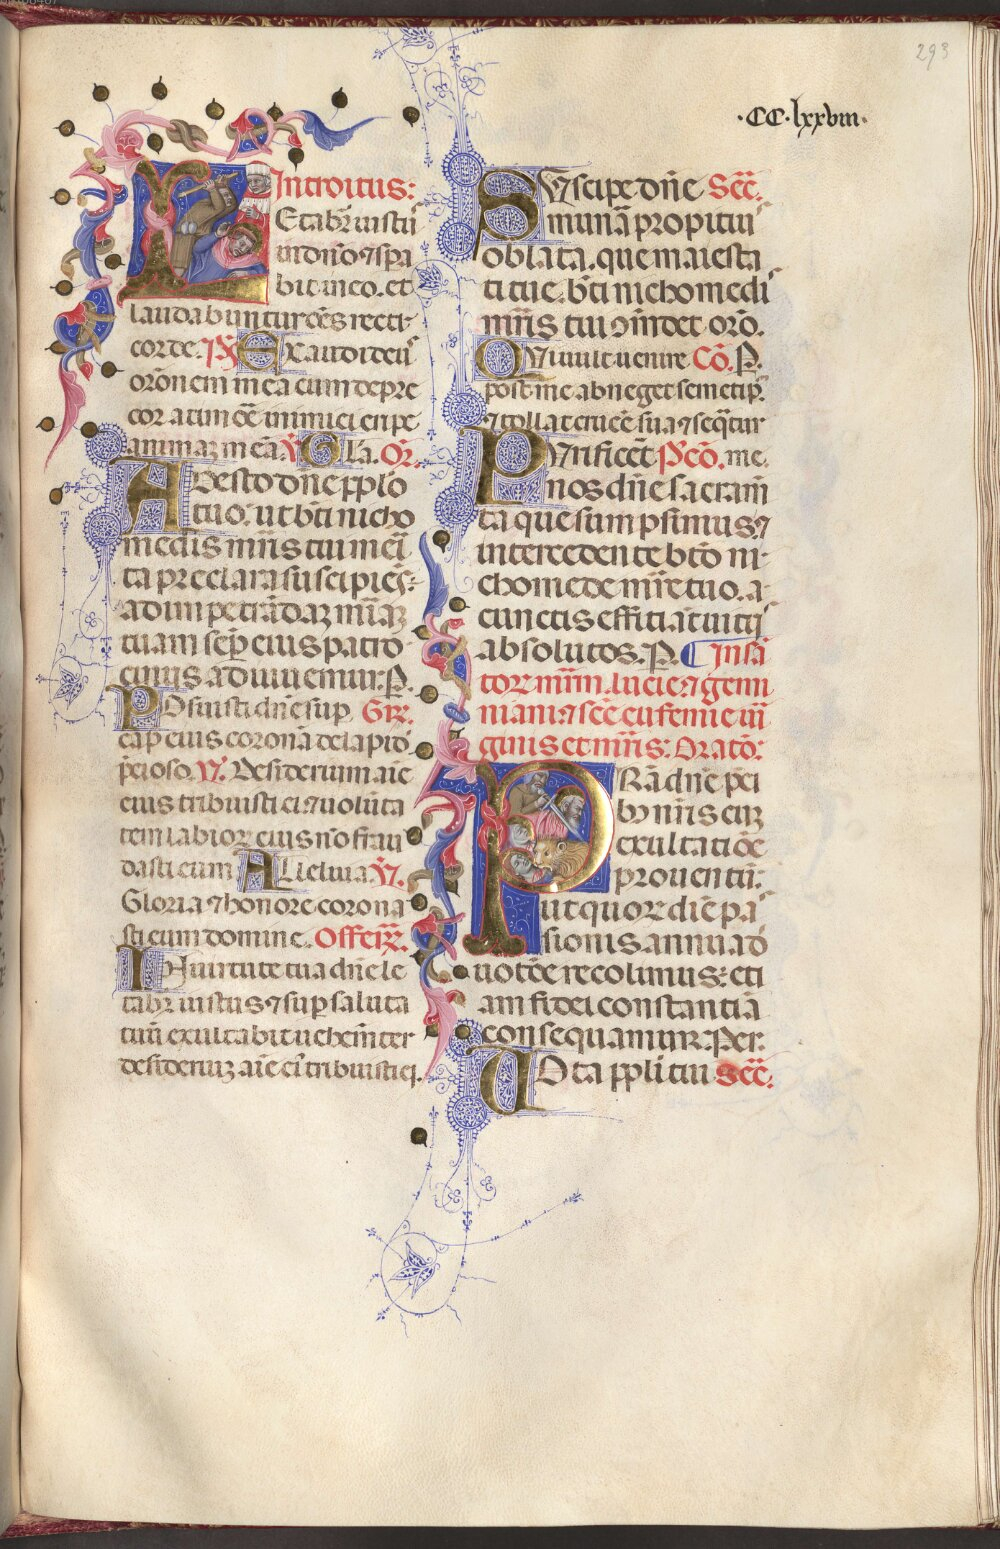 293
·CC·lxxviii·
Introitus:
Letabr̄ iustꝰ
in dn̄o ⁊ spa
bit in eo. et
laudabuntur oēs recti
corde. p̄s Exaudi deꝰ
orōnem mea cum depre
cor a timore inimici eripe
animaz mea. V̄ Gl̄a. Or̄.
Adesto dn̄e pplo
tuo. ut bt̄i nicho
medis mr̄is tui meri
ta preclara suscipiēs:
ad impetrādaz mīaz
tuam sēp eius patro
ciniis adiuuemur. P.
Posuisti dn̄e sup Gr̄.
cap eius coronā de lapid
p̄cioso. V̄. Desiderium aīe
eius tribuisti ei ⁊ uolūta
tem labior eius nō frau
dasti eum Alleluia. V̄.
Gloria ⁊ honore corona
sti eum domine. Offerr̄.
In uirtute tua dn̄e le
tabr̄ iustus ⁊ sup saluta
tuū exultabit uehemēter
desideriuz aīe ei tribuisti ei.
Suscipe dn̄e Sec̄.
munā propitiuˢ
oblata. que maiesta
ti tue. bt̄i nichomedi
mr̄is tui ꝯmēdet orō.
Qui uult uenire Cō. P.
post me abneget semetip̄.
⁊ tollat crucē sua ⁊ seq̄tur
Purificēt P̄cō. me.
nos dn̄e sacram̄
ta que sumpsimus. ⁊
intercedente bt̄o ni-
chomede mr̄e tuo. a
cunctis efficiāt uitii
absolutos. P. In sc̄ā
torz mr̄m. lucie ⁊ gemi
niani ⁊ sc̄e eufemie uir̄
ginis et mr̄is: Oratō:
Pra dn̄e pcī
bꝰ mr̄is euz
exultatiōe
prouentū:
ut quorz diē pa
sionis annua d
uotōe recolimus: eti
am fidei constantiā
consequamur. Per.
Uota ppli tui Sec̄.